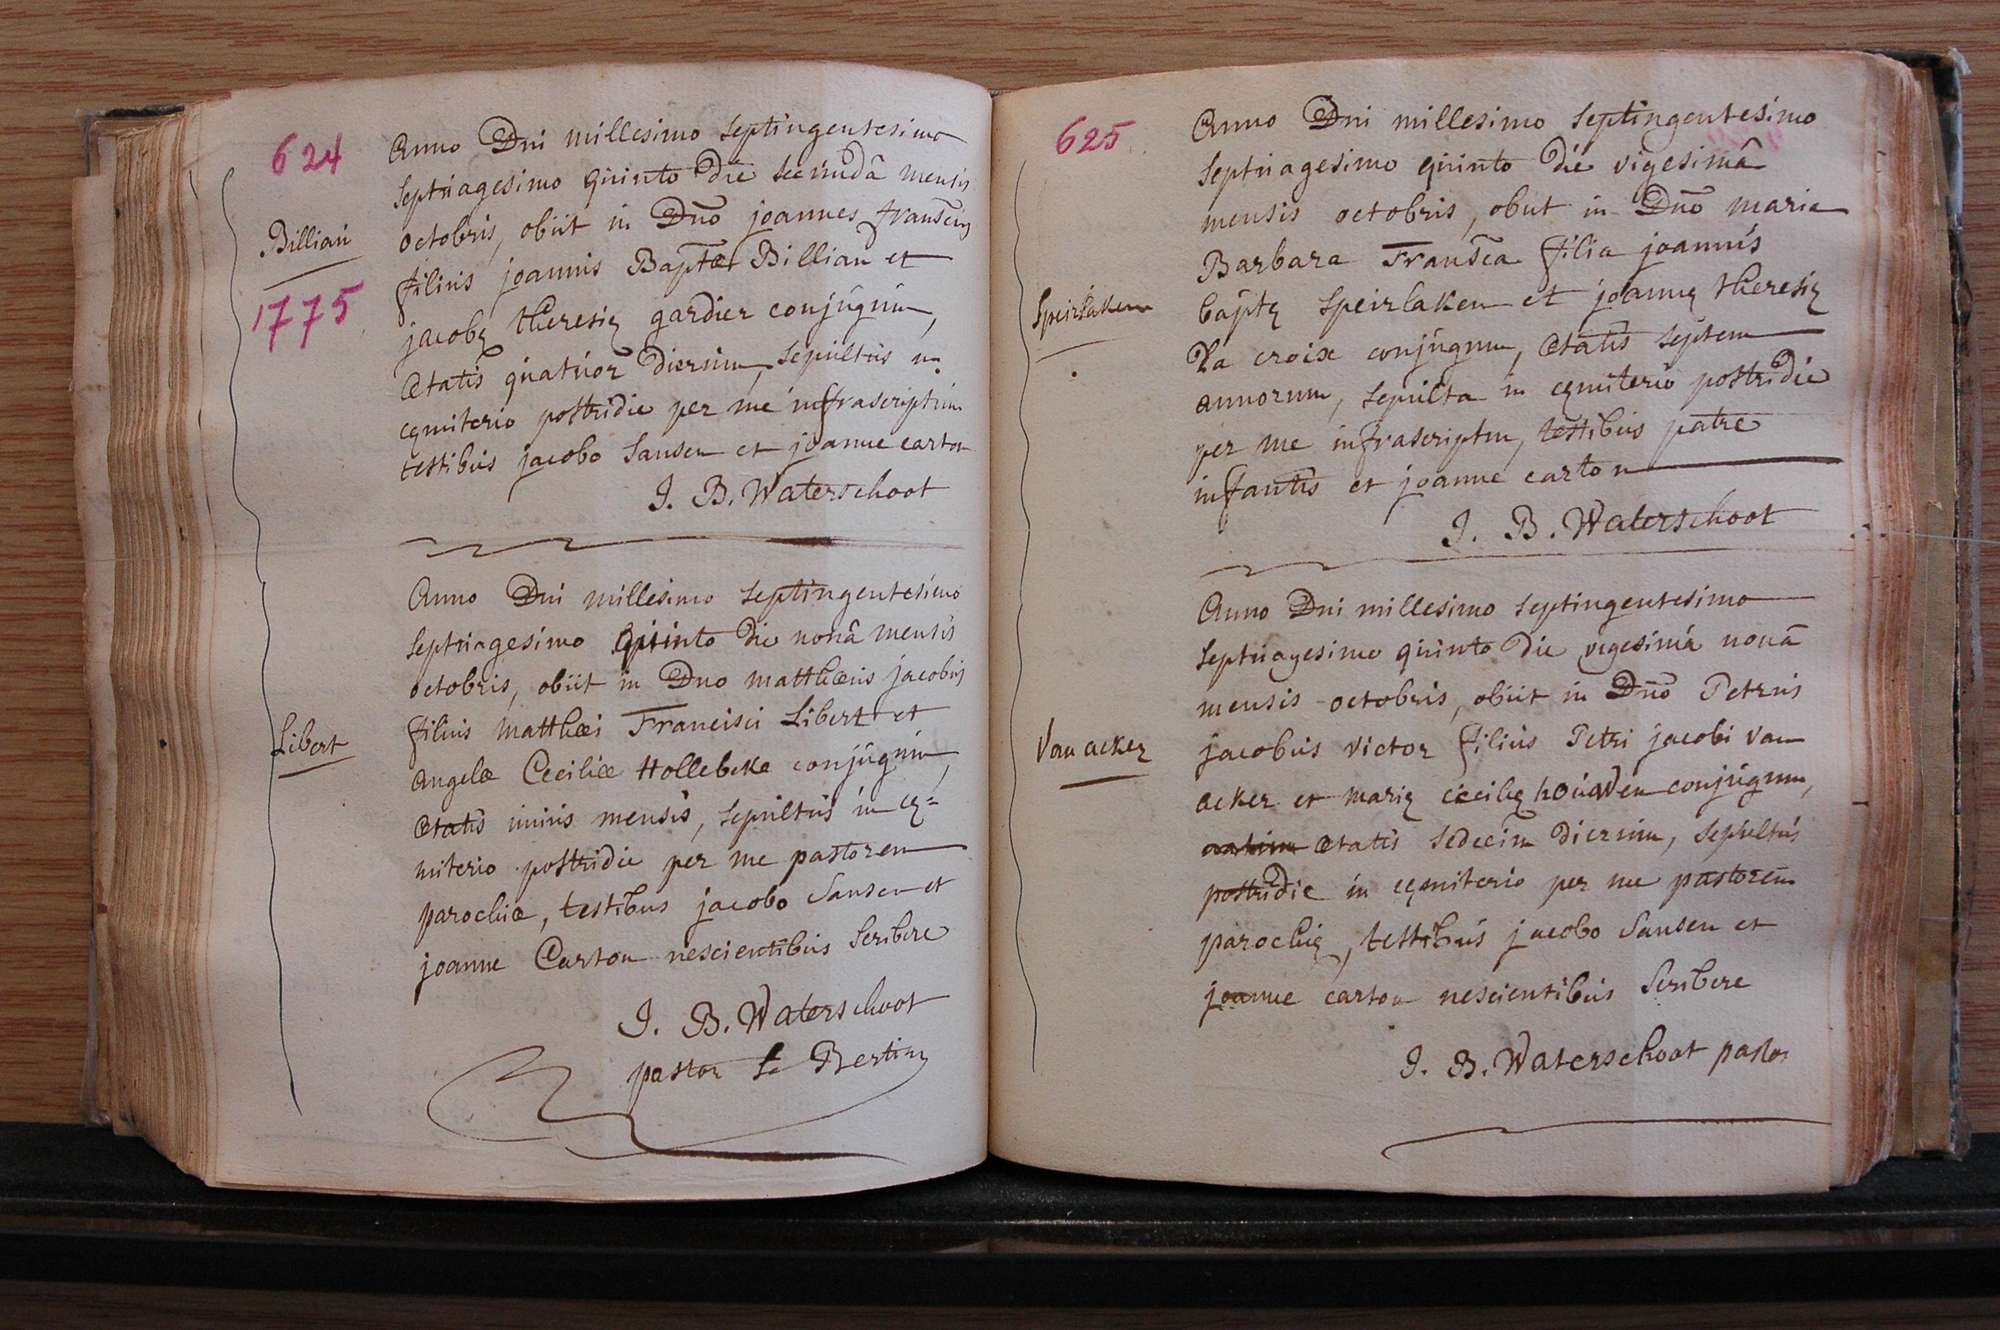 624
Billiau
1775
Anno Dni millesimo septingentesimo
septuagesimo quinto die secundâ mensis
octobris, obiit in Dno joannes franscus
filius joannis Baptæ Billiau et
jacobę theresię gardier conjugum,
ætatis quatuor dierum, sepultus in
cęmiterio postridie per me infrascriptum
testibus jacobo Sansen et joanne carton
J. B. Waterschoot
Libert
Anno Dni millesimo septingentesimo
septuagesimo quinto die nonâ mensis
octobris, obiit in Dno matthæus jacobus
filius matthæi Francisci Libert et
angelæ Ceciliæ Hollebeke conjugum,
ætatis unius mensis, sepultus in cę=
miterio postridie per me pastorem
parochiæ, testibus jacobo Sansen et
joanne Carton nescientibus scribere
J. B. Waterschoot
pastor St Bertini
625
Anno Dni millesimo septingentesimo
septuagesimo quinto die vigesimâ
mensis octobris, obiit in Dno maria
Barbara Fransca filia joannis
Speirlaken
baptę Speirlaken et joannę theresię
La croix conjugum, ætatis septem
annorum, sepulta in cęmiterio postridie
per me infrascriptum, testibus patre
infantis et joanne carton
J. B. Waterschoot
Anno Dni millesimo septingentesimo
septuagesimo quinto die vigesimâ nonâ
mensis octobris, obiit in Dno Petrus
Van acker
jacobus victor filius Petri jacobi van
acker et marię cecilię houwen conjugum,
ætatis sedecim dierum, sepultus
postridie in cęmiterio per me pastorem
parochię, testibus jacobo Sansen et
joanne carton nescientibus scribere
J. B. Waterschoot pastor